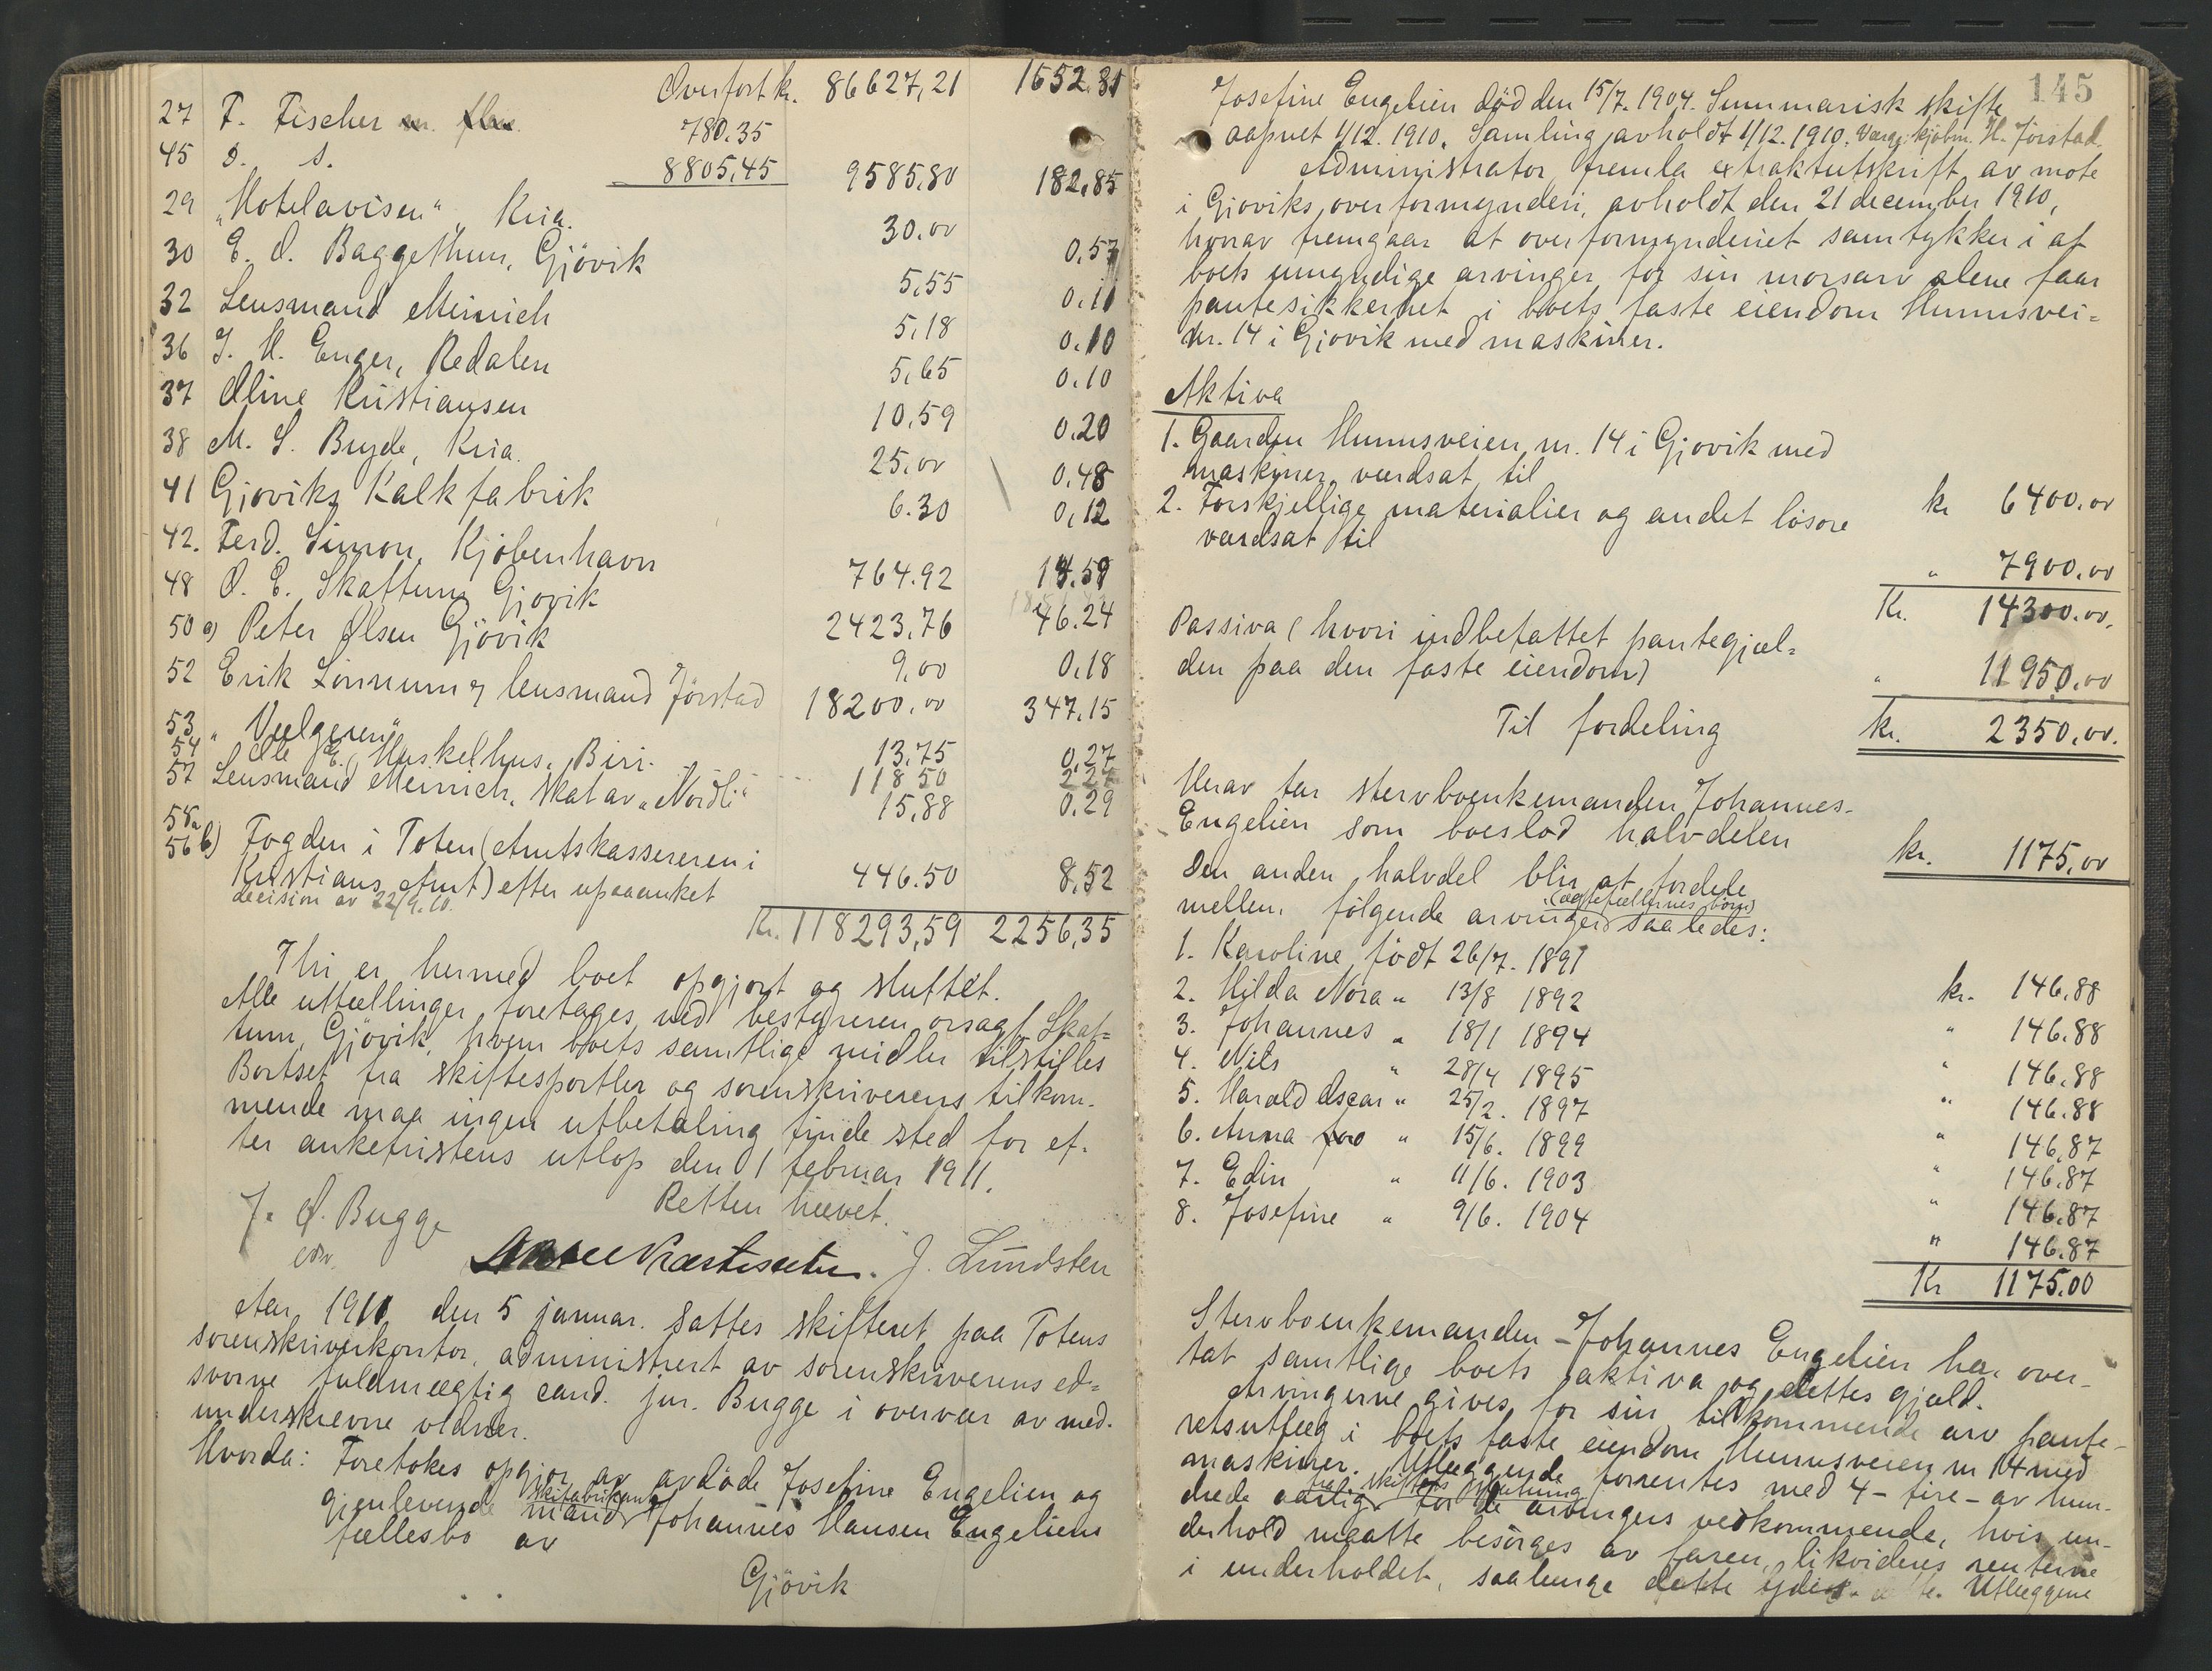 Overført kr. 86627,21 1652.81
27 F. Fischer 780.35
45 d. s. 8805,45 9585,80 182,85
29 „Hotelavisen“, Kria. 30.00 0.57
30 E. O. Baggethun, Gjövik 5,55 0.11
32 Lensmand Meinich 5,18 0.10
36 J. H. Enger, Redalen 5,65 0.10
37 Oline Kristiansen 10,59 0.20
38 M. S. Bryde, Kria. 25,00 0.48
41 Gjøviks Kalkfabrik 6.30 0,12
42. Ferd. Simon, Kjöbenhavn 764.92 14.59
48 O. E. Skattum Gjøvik 2423,76 46.24
50 a) Peter Olsen Gjövik 9,00 0,18
52 Erik Lönnum og lensmand Jörstad 18200,00 347,15
53 „Velgeren“ 13,75 0,27
54 E. Haskelhus, Biri 118 50 2 27
57 Lensmand Meinich, skat av „Nordli“ 15,88 0.29
58a
56 b) Fogden i Toten (Amtskassereren i
Kristians Amt) efter upaaanket 446.50 8,52
decision av 22/9.10.
Kr. 118293,59 2256,35
Thi er hermed boet opgjort og sluttet.
Alle uttællinger foretages ved bestyreren, orsagf. Skat=
tum, Gjövik, hvem boets samtlige midler tilstilles
Bortset fra skiftesportler og sorenskriverens tilkom-
mende maa ingen utbetaling finde sted før ef-
ter ankefristens utløp den 1 februar 1911.
Retten hævet.
J. Ø. Bugge
edsv.
J. Lundsten
Aar 1911 den 5 januar. sattes skifteret paa Totens
sorenskriverkontor, administrert av sorenskriverens ed=
svorne fuldmægtig cand. jur. Bugge i overvær av med-
underskrevne vidner.
Hvorda: Foretokes opgjør av avdøde Josefine Engelien og
gjenlevende mand skifabrikant Johannes Hansen Engeliens
fællesbo av
Gjövik
145
Josefine Engelien död den 15/7. 1904. Summarisk skifte
aapnet 1/12. 1910. Samling avholdt 1/12. 1910. Værge: kjøbm. H. Jörstad.
Administrator fremla extraktutskrift av møte
i Gjøviks overformynderi, avholdt den 21 december 1910,
hvorav fremgaar at overformynderiet samtykker i at
boets umyndige arvinger for sin morsarv alene faar
pantesikkerhet i boets faste eiendom Hunnsvei=
nr. 14 i Gjøvik med maskiner.
Aktiva
1. Gaarden Hunnsveien nr. 14 i Gjøvik med
maskiner, værdsat til kr 6400.00
2. Forskjellige materialier og andet løsøre
værdsat til „ 7900.00
Kr. 14300.00.
Passiva (hvori indbefattet pantegjæl=
den paa den faste eiendom) „ 11950.00
Til fordeling kr. 2350,00.
Herav tar stervboenkemanden Johannes
Engelien som boeslod halvdelen kr. 1175,00
Den anden halvdel blir at fordele
mellem følgende arvinger (ægtefællernes børn) saaledes:
1. Karoline, født 26/7. 1891 kr. 146.88
2. Hilda Nora „ 13/8 1892 „ 146.88
3. Johannes „ 18/1 1894 „ 146.88
4. Nils „ 28/4 1895 „ 146.88
5. Harald Oscar „ 25/2. 1897 „ 146,87
6. Anna „ 15/6. 1899 „ 146.87
7. Edin „ 11/6. 1903 „ 146.87
8. Josefine „ 9/6. 1904 „ 146.87
Kr 1175.00
Stervboenkemanden – Johannes Engelien har over-
tat samtlige boets aktiva og dettes gjæld.
Arvingerne gives for sin tilkommende arv pante-
retsutlæg i boets faste eiendom Hunnsveien nr 14 med
maskiner. Utlæggende forrentes med 4 – fire – av hun-
drede aarlig fra skiftets slutning. For de arvingers vedkommende, hvis un-
derhold maatte besørges av faren, likvideres renterne
i underholdet, saalænge dette ydes. Utlæggene